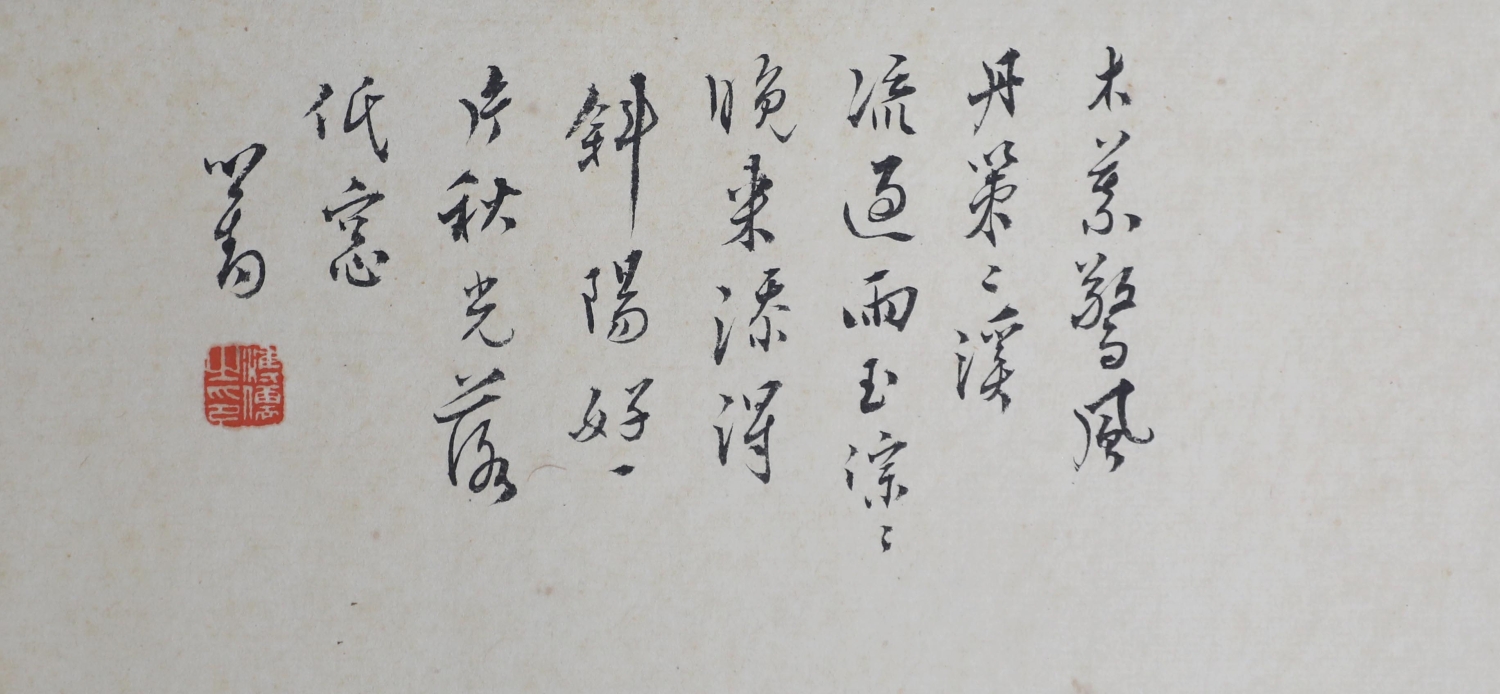 木葉驚風
丹策〻溪
流過雨玉淙〻
晚来添得
斜陽好一
片秋光落
低窓
心畬
溥儒之印